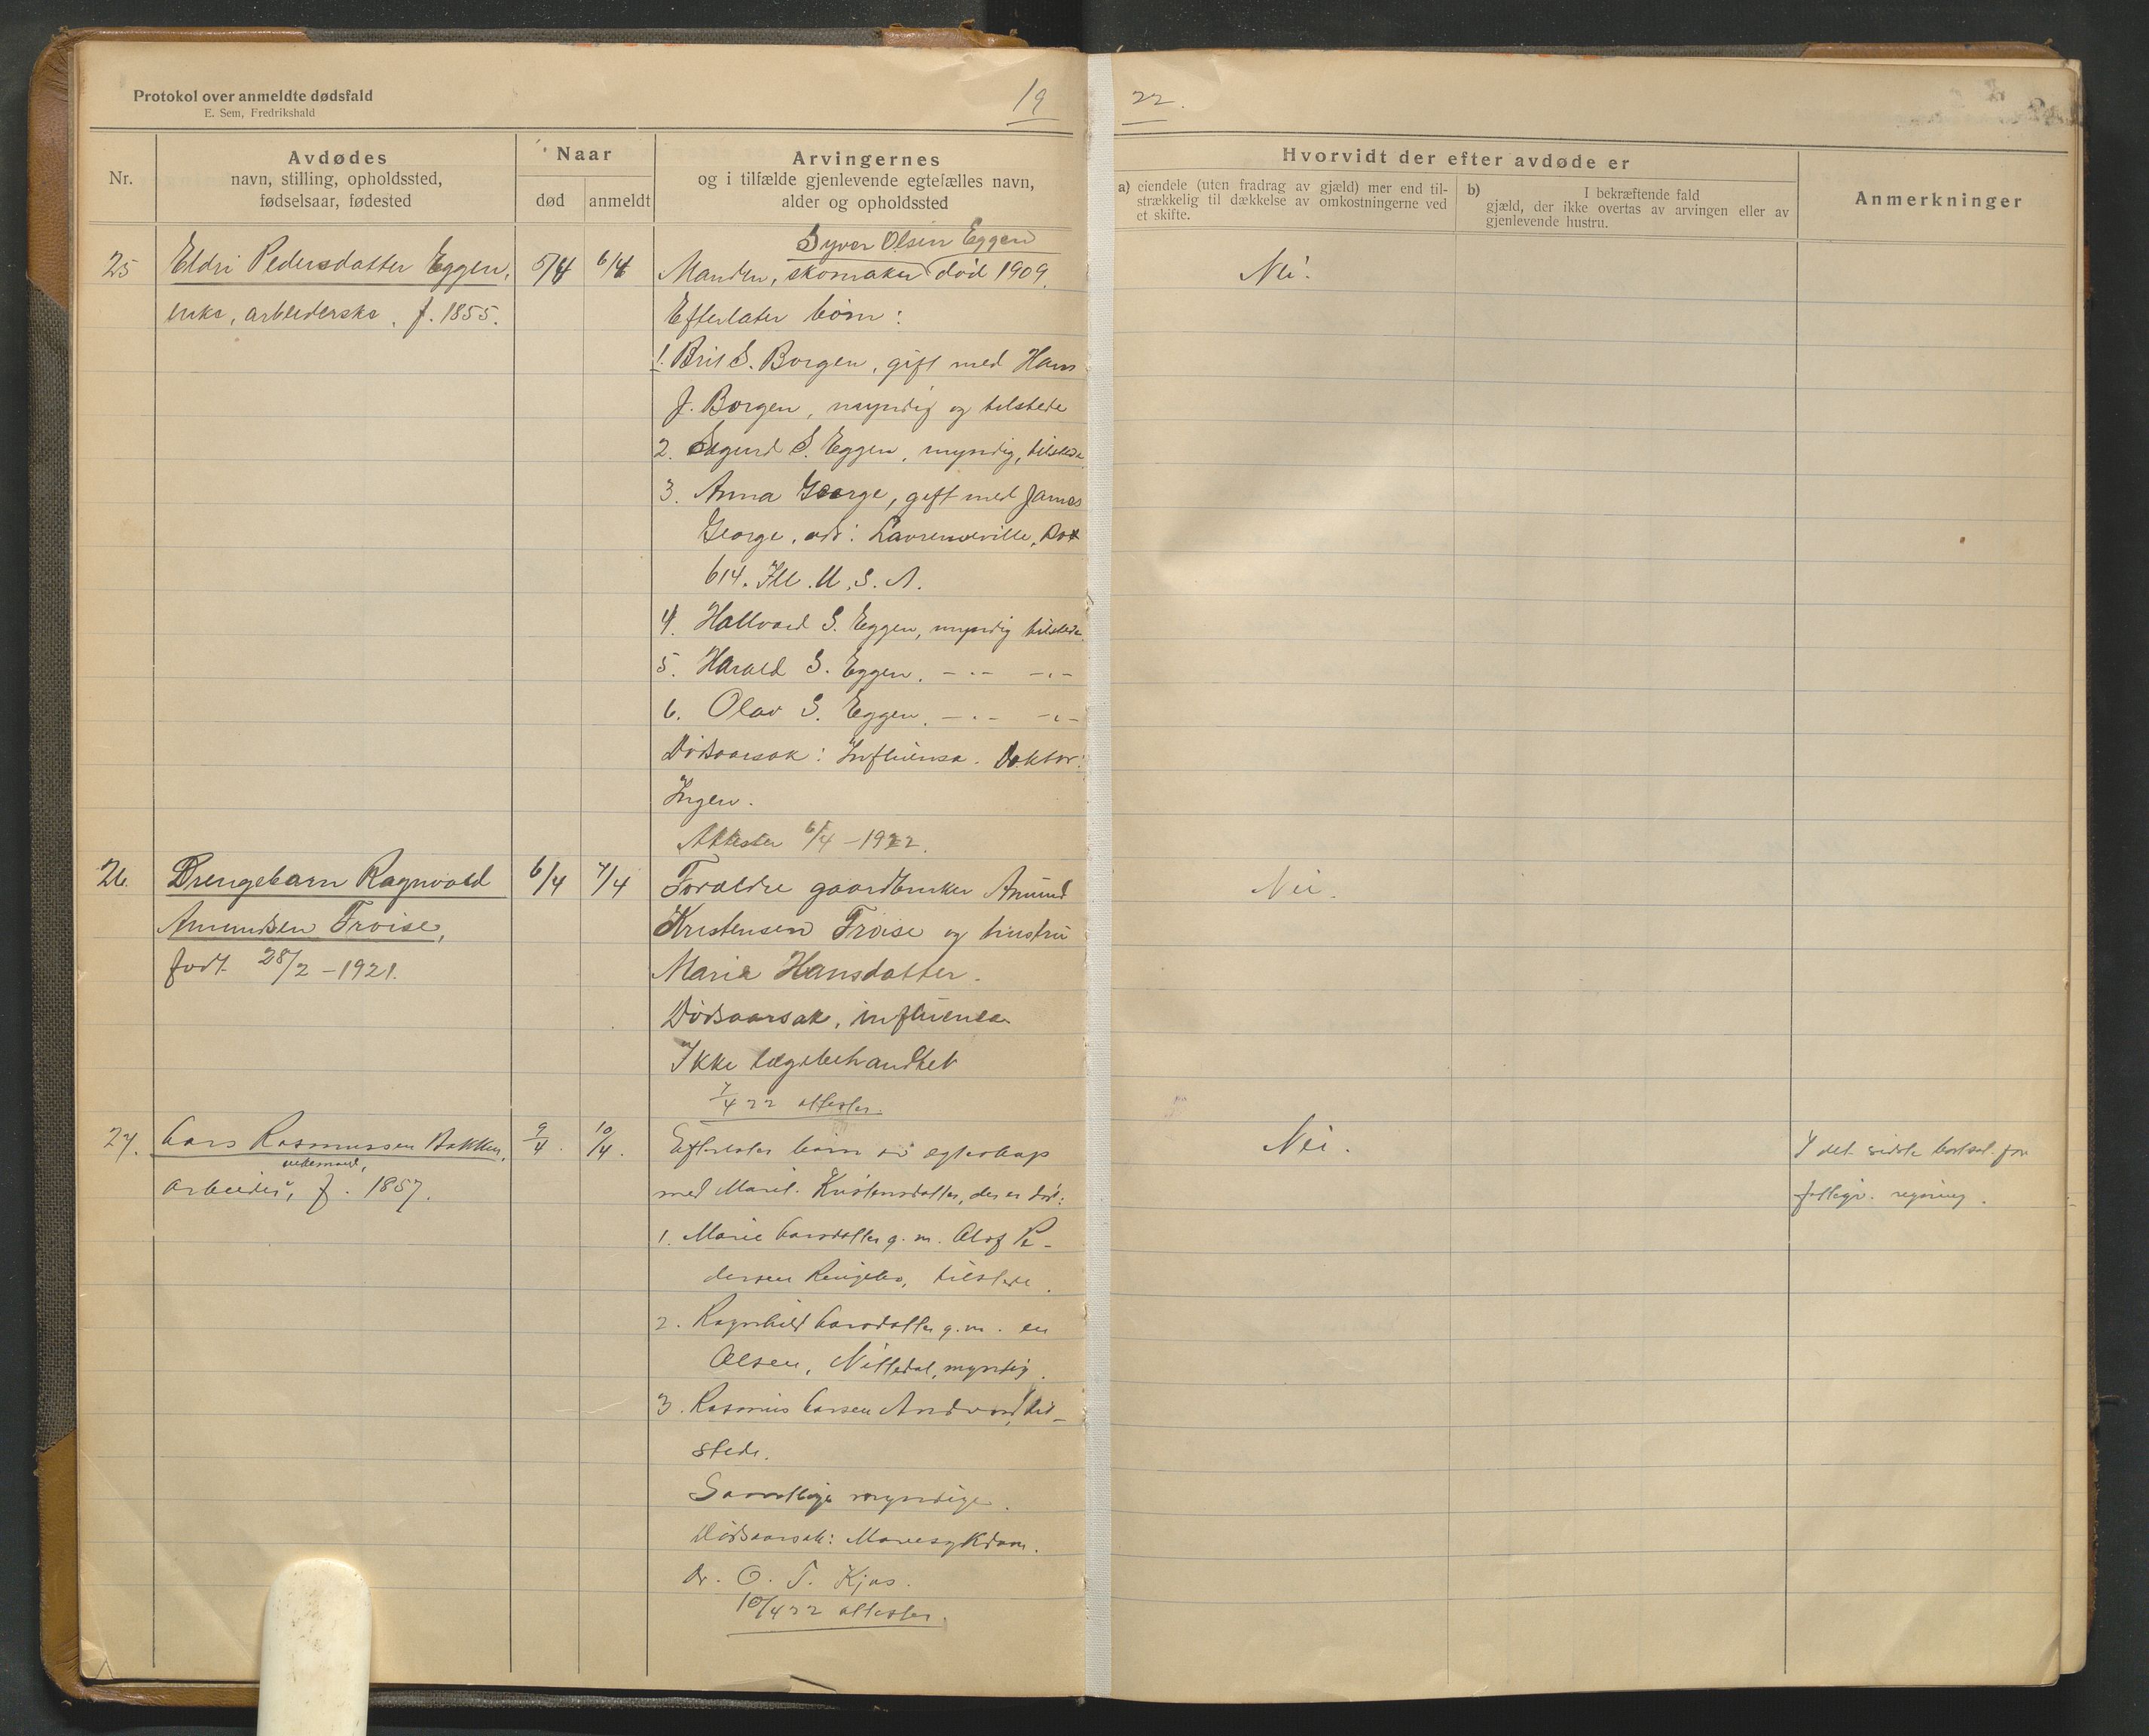 Protokol over anmeldte dødsfald
E. Sem, Fredrikshald
19
22.
Nr.
Avdødes
navn, stilling, opholdssted,
fødselsaar, fødested
Naar
død
anmeldt
Arvingernes
og i tilfælde gjenlevende egtefælles navn,
alder og opholdssted
Hvorvidt der efter avdøde er
a) eiendele (uten fradrag av gjæld) mer end til-
strækkelig til dækkelse av omkostningerne ved
et skifte.
b) I bekræftende fald
gjæld, der ikke overtas av arvingen eller av
gjenlevende hustru.
Anmerkninger
25
Eldri Pedersdatter Eggen,
enke, arbeiderske, f. 1855.
5/4
6/4
Syver Olsen Eggen
Manden, skomaker død 1909.
Efterlater børn:
1. Brit S. Borgen, gift med Hans
J. Borgen, myndig og tilstede
2. Sigurd S. Eggen, myndig, tilstede
3. Anna George, gift med James
George, adr: Lavrenceville, Box
614. Ill. U.S.A.
4. Hallvard S. Eggen, myndig tilstede
5. Harald S. Eggen. -.- -.-
6. Olav S. Eggen. -.- -.-
Dødsaarsak: Influensa. Doktor:
Ingen.
Attester 6/4 - 1922.
Nei.
26.
Drengebarn Ragnvald
Amundsen Frøise,
født 28/2 - 1921.
6/4
7/4
Forældre gaardbruker Amund
Kristensen Frøise og hustru
Marie Hansdatter.
Dødsaarsak, influensa
Ikke lægebehandlet
7/4 22 attester.
Nei.
27.
Lars Rasmussen Bakken,
enkemand,
arbeider, f. 1857.
9/4.
10/4.
Efterlater børn av egteskap
med Marit Kristensdatter, der er død:
1. Marie Larsdatter g. m. Olof Pe-
dersen Ringebo, tilstede.
2. Ragnhild Larsdatter g. m. en
Olsen, Nittedal, myndig.
3. Rasmus Larsen Andvord, til-
stede.
Samtlige myndige.
Dødsaarsak: Mavesykdom.
Dr. O. T. Kjos.
10/4 22 attester.
Nei.
I det sidste bortsat for
fattigv. regning.